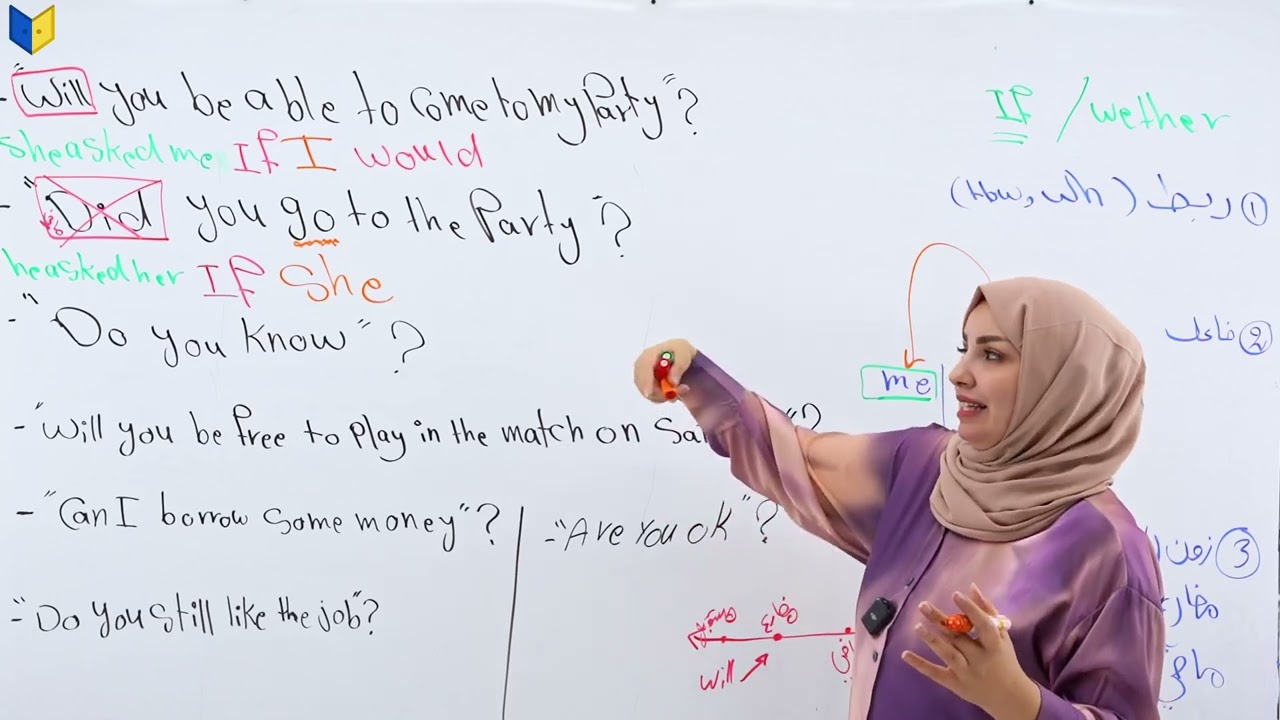 - "Will you be able to come to my Party"?
she asked me If I would
- "Did you go to the Party"?
he asked her If she
- "Do you know"?
- "Will you be free to play in the match on Sa "?
- "Can I borrow some money"?
- "Are You ok"?
- "Do you still like the job"?
If / wether
① ربط (How, wh)
② فاعل
me
③ زمن
مضارع
ماضي
مضارع
will